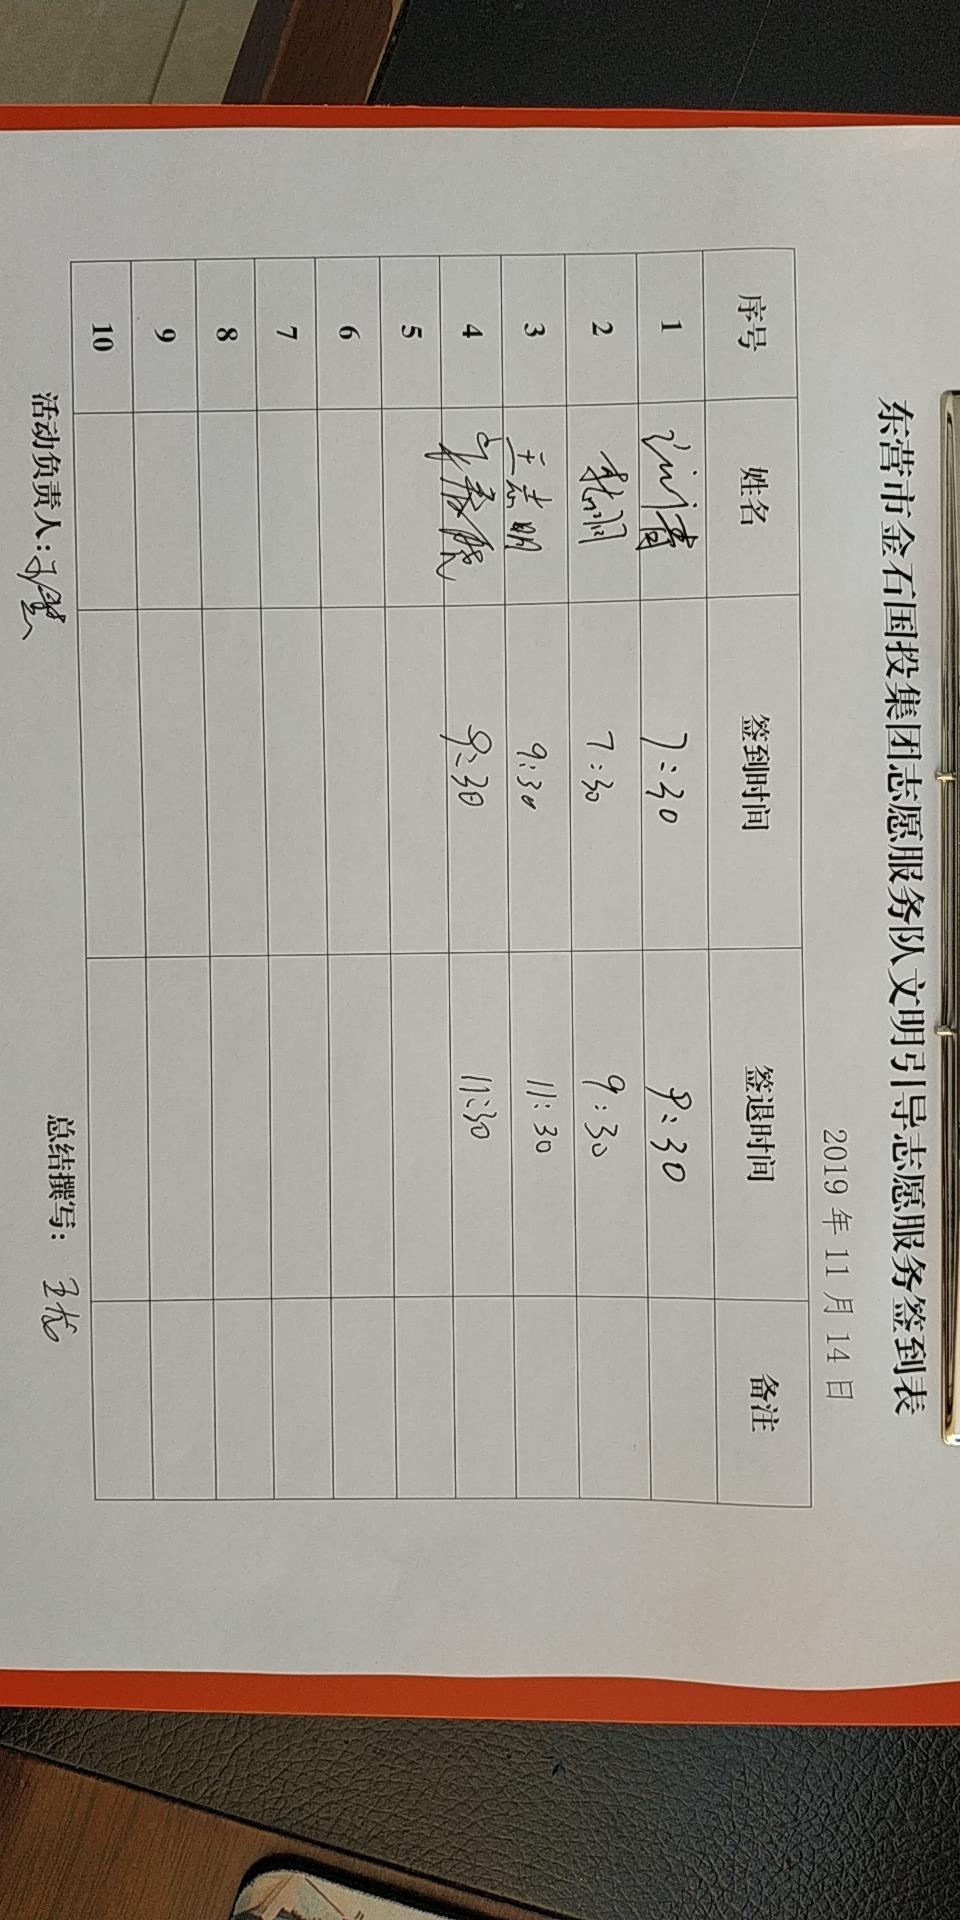 东营市金石国投集团志愿服务队文明引导志愿服务签到表
2019 年 11 月 14 日
序号 姓名 签到时间 签退时间 备注
1 7:30 9:30
2 7:30 9:30
3 王志明 9:30 11:30
4 9:30 11:30
5
6
7
8
9
10
活动负责人: 总结撰写: 王龙